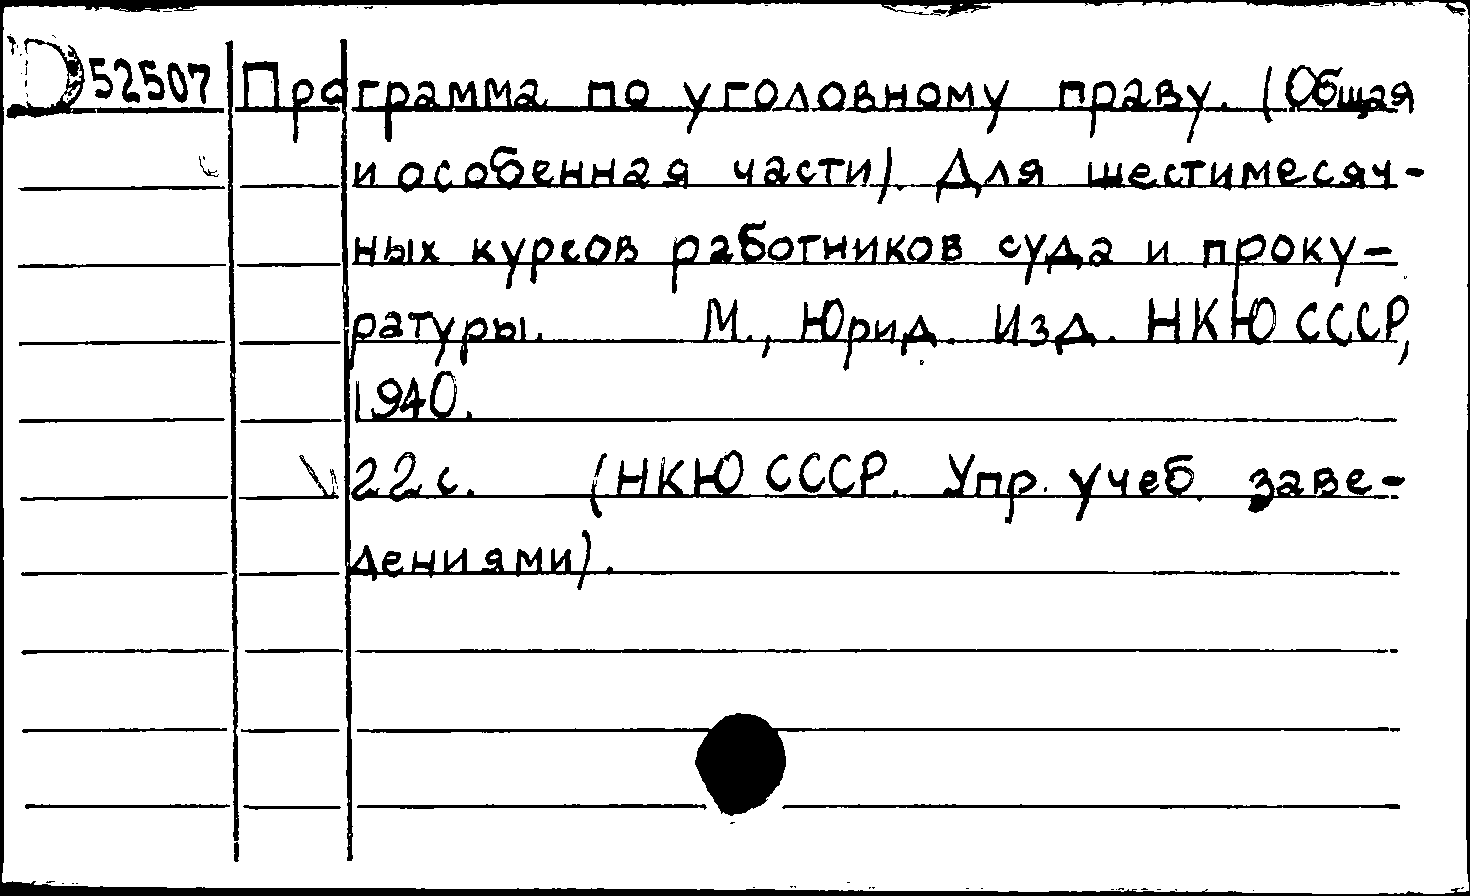 D52507 Программа по уголовному праву. (Общая
и особенная части). Для шестимесяч-
ных курсов работников суда и проку-
ратуры. М., Юрид. Изд. НКЮ СССР,
1940.
22 с. (НКЮ СССР. Упр. учеб. заве-
дениями).